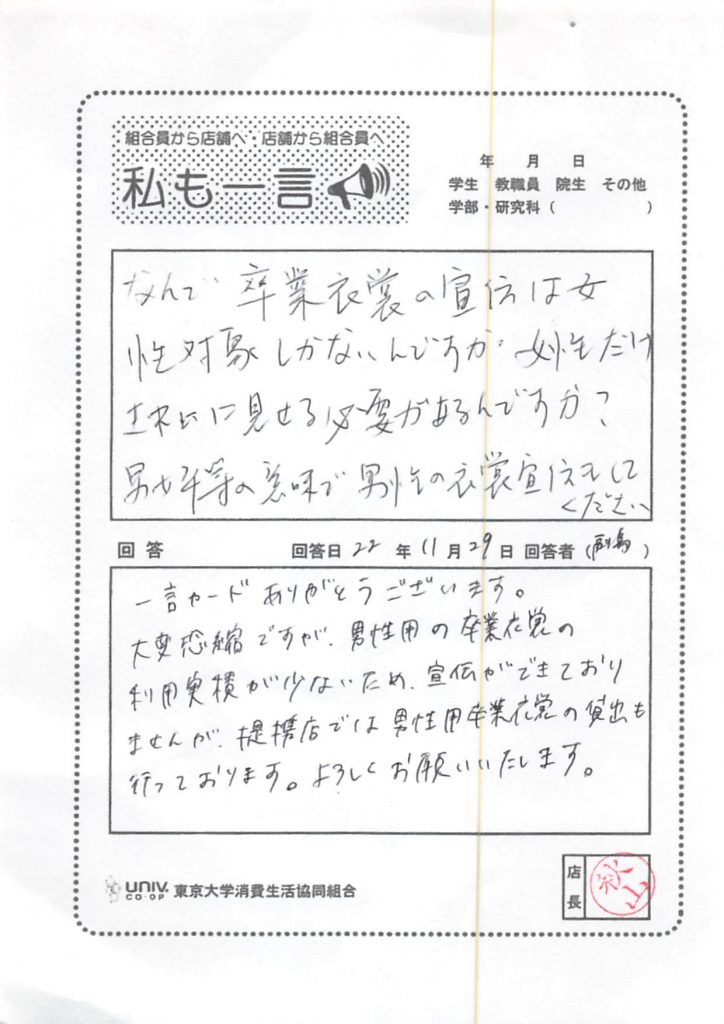 組合員から店舗へ・店舗から組合員へ
私も一言
年 月 日
学生 教職員 院生 その他
学部・研究科 ( )
なんで 卒業衣裳の宣伝は女
性対象しかないんですか・女性だけ
に見せる必要があるんですか?
男女平等の意味で男性の衣裳宣伝もして
ください
回答 回答日 22 年 11 月 29 日 回答者 ( )
一言カードありがとうございます。
大変恐縮ですが、男性用の卒業衣裳の
利用実積が少ないため、宣伝ができており
ませんが、提携店では男性用卒業衣裳の貸出も
行っております。よろしくお願いいたします。
UNIV. CO-OP 東京大学消費生活協同組合
店長
秋山